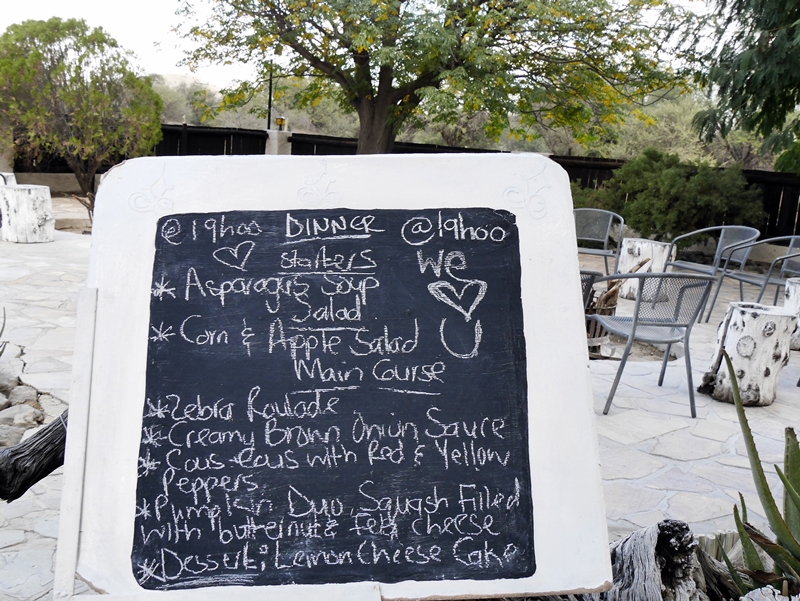 @19hoo DINNER @19hoo
♡ starters we
* Asparagus Soup ♡
Salad U
* Corn & Apple Salad
Main Course
* Zebra Roulade
* Creamy Brown Onion Sauce
* Cous-Cous with Red & Yellow
Peppers
* Pumpkin Duo, Squash Filled
with butternut & feta cheese
* Dessert: Lemon Cheese Cake